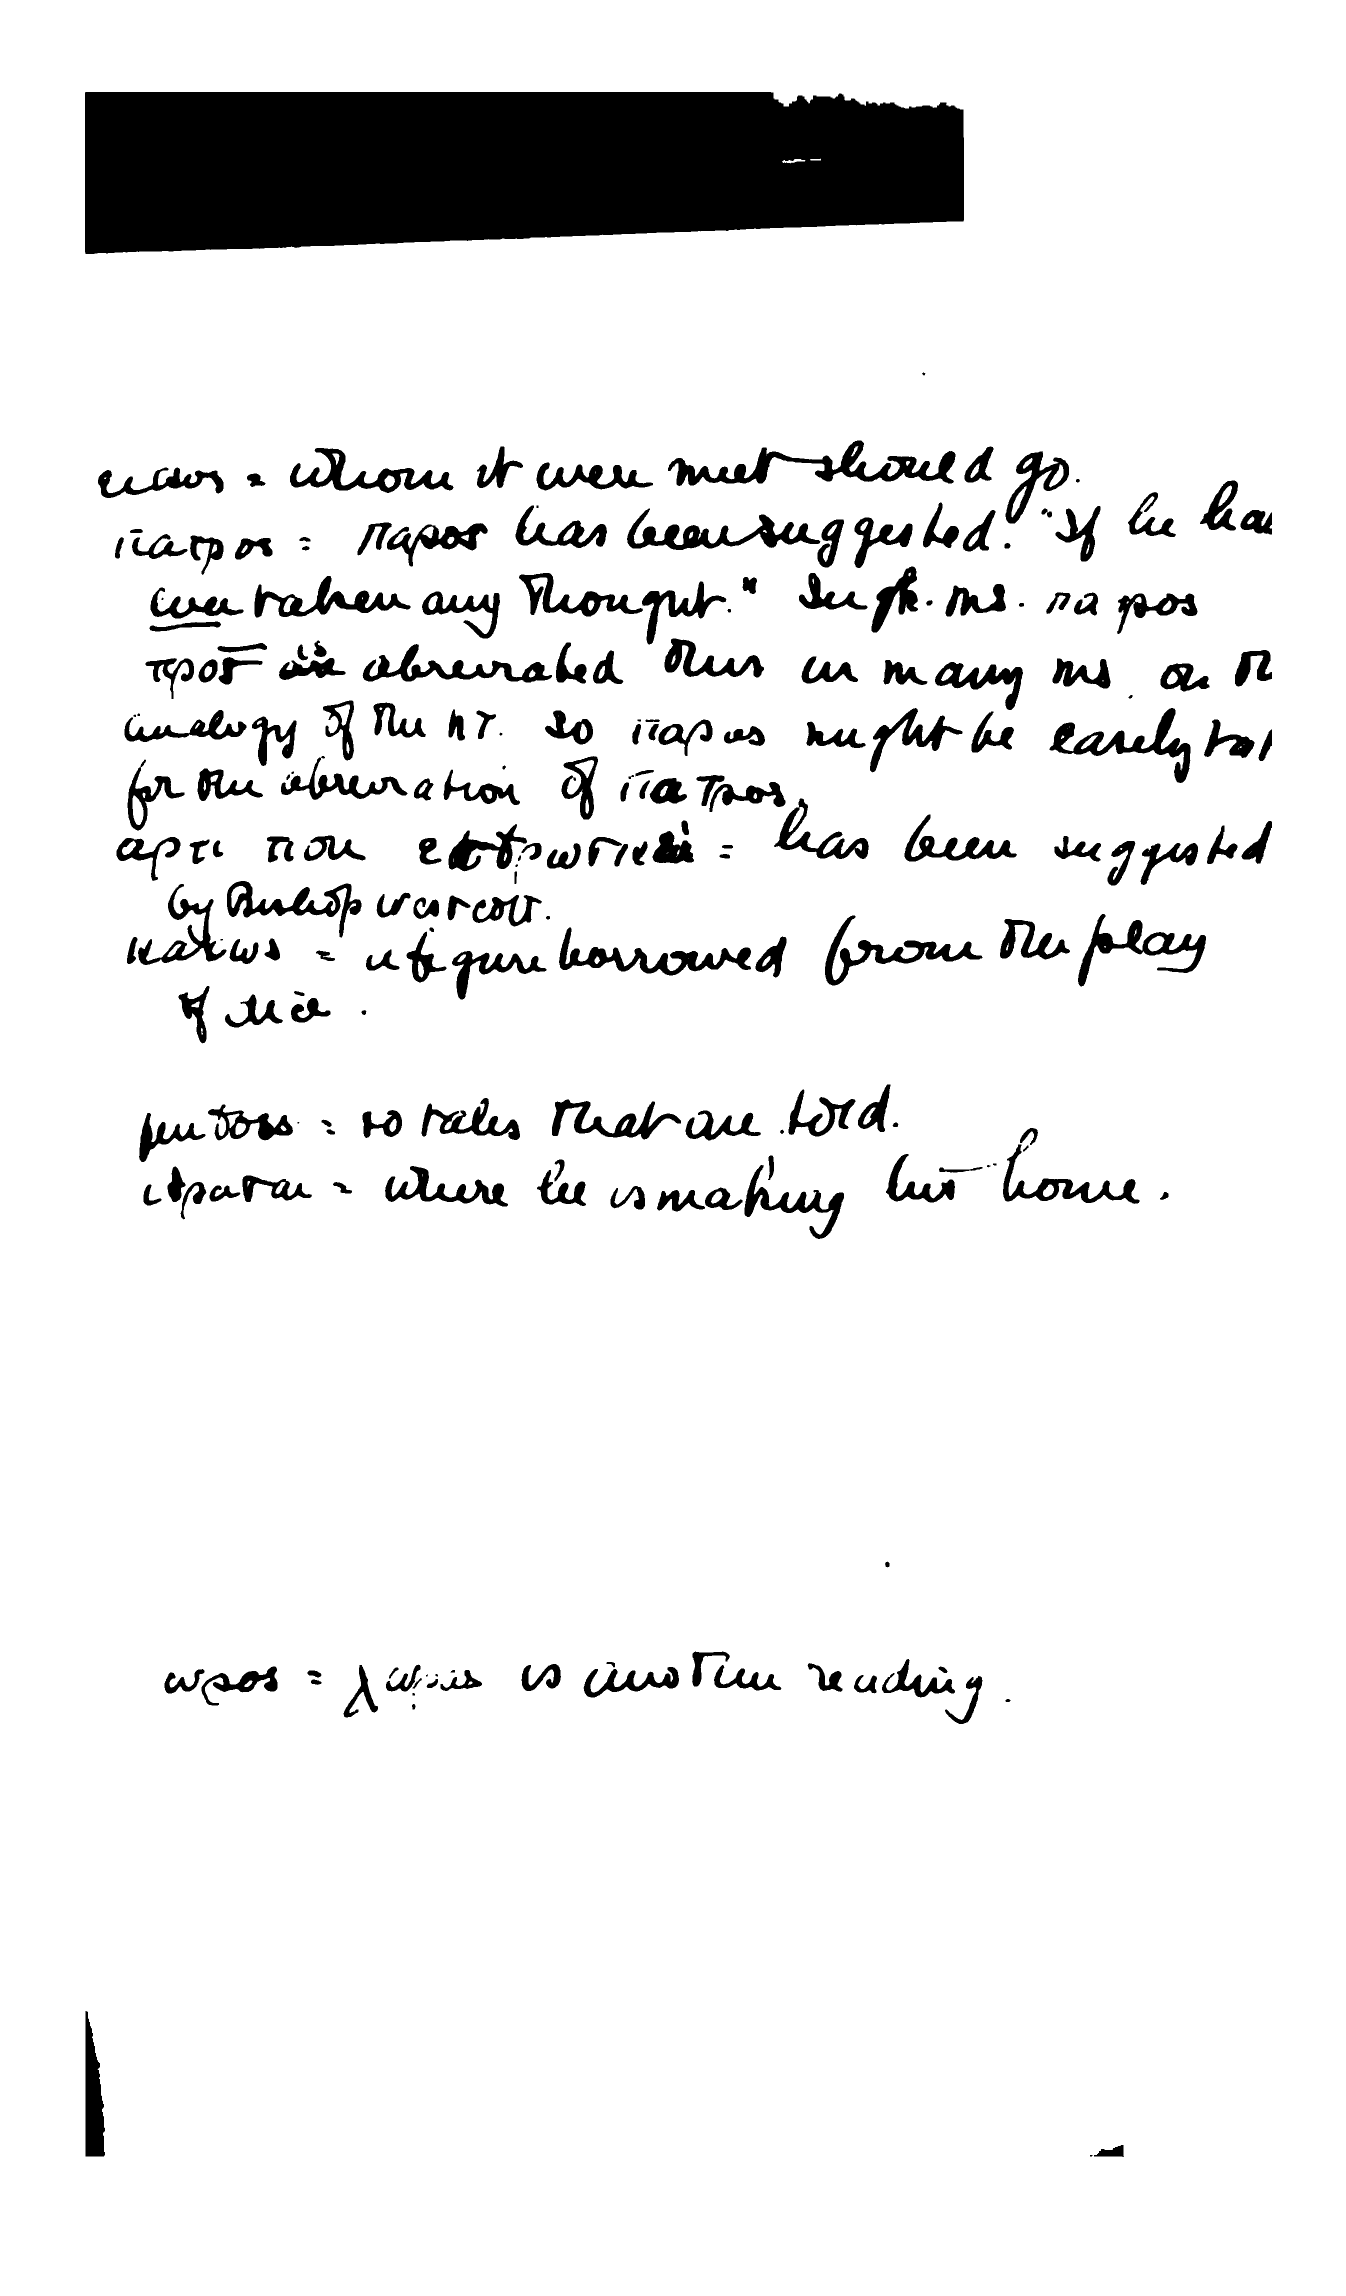 εικος = whom it were meet should go.
πατρος = παρος has been suggested. "If he has
ever taken any thought." In gk. ms. παρος
προς abbreviated thus in many ms. on th
analogy of the NT. So παρος might be easily tak
for the abbreviation of πατρος.
αρτι που = has been suggested
by Bishop Westcott.
καλως = a figure borrowed from the play
of dice.
μυθοις = to tales that are told.
ιδρυται = where he is making his home.
ωρος = is another reading.